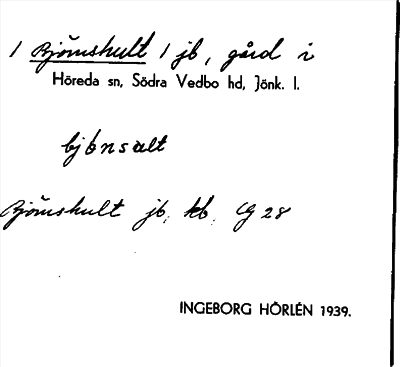 1 Björnshult 1 jb, gård i
Höreda sn, Södra Vedbo hd, Jönk. l.
bjönsalt
Björnshult jb, kb. G 28
INGEBORG HÖRLÉN 1939.